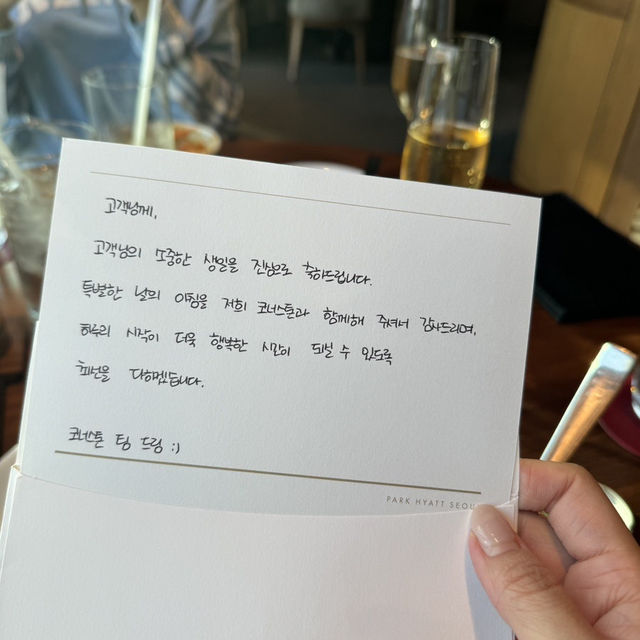 고객님께,
고객님의 소중한 생일을 진심으로 축하드립니다.
특별한 날의 아침을 저희 코너스톤과 함께해 주셔서 감사드리며,
하루의 시작이 더욱 행복한 시간이 되실 수 있도록
최선을 다하겠습니다.
코너스톤 팀 드림 :)
PARK HYATT SEOU